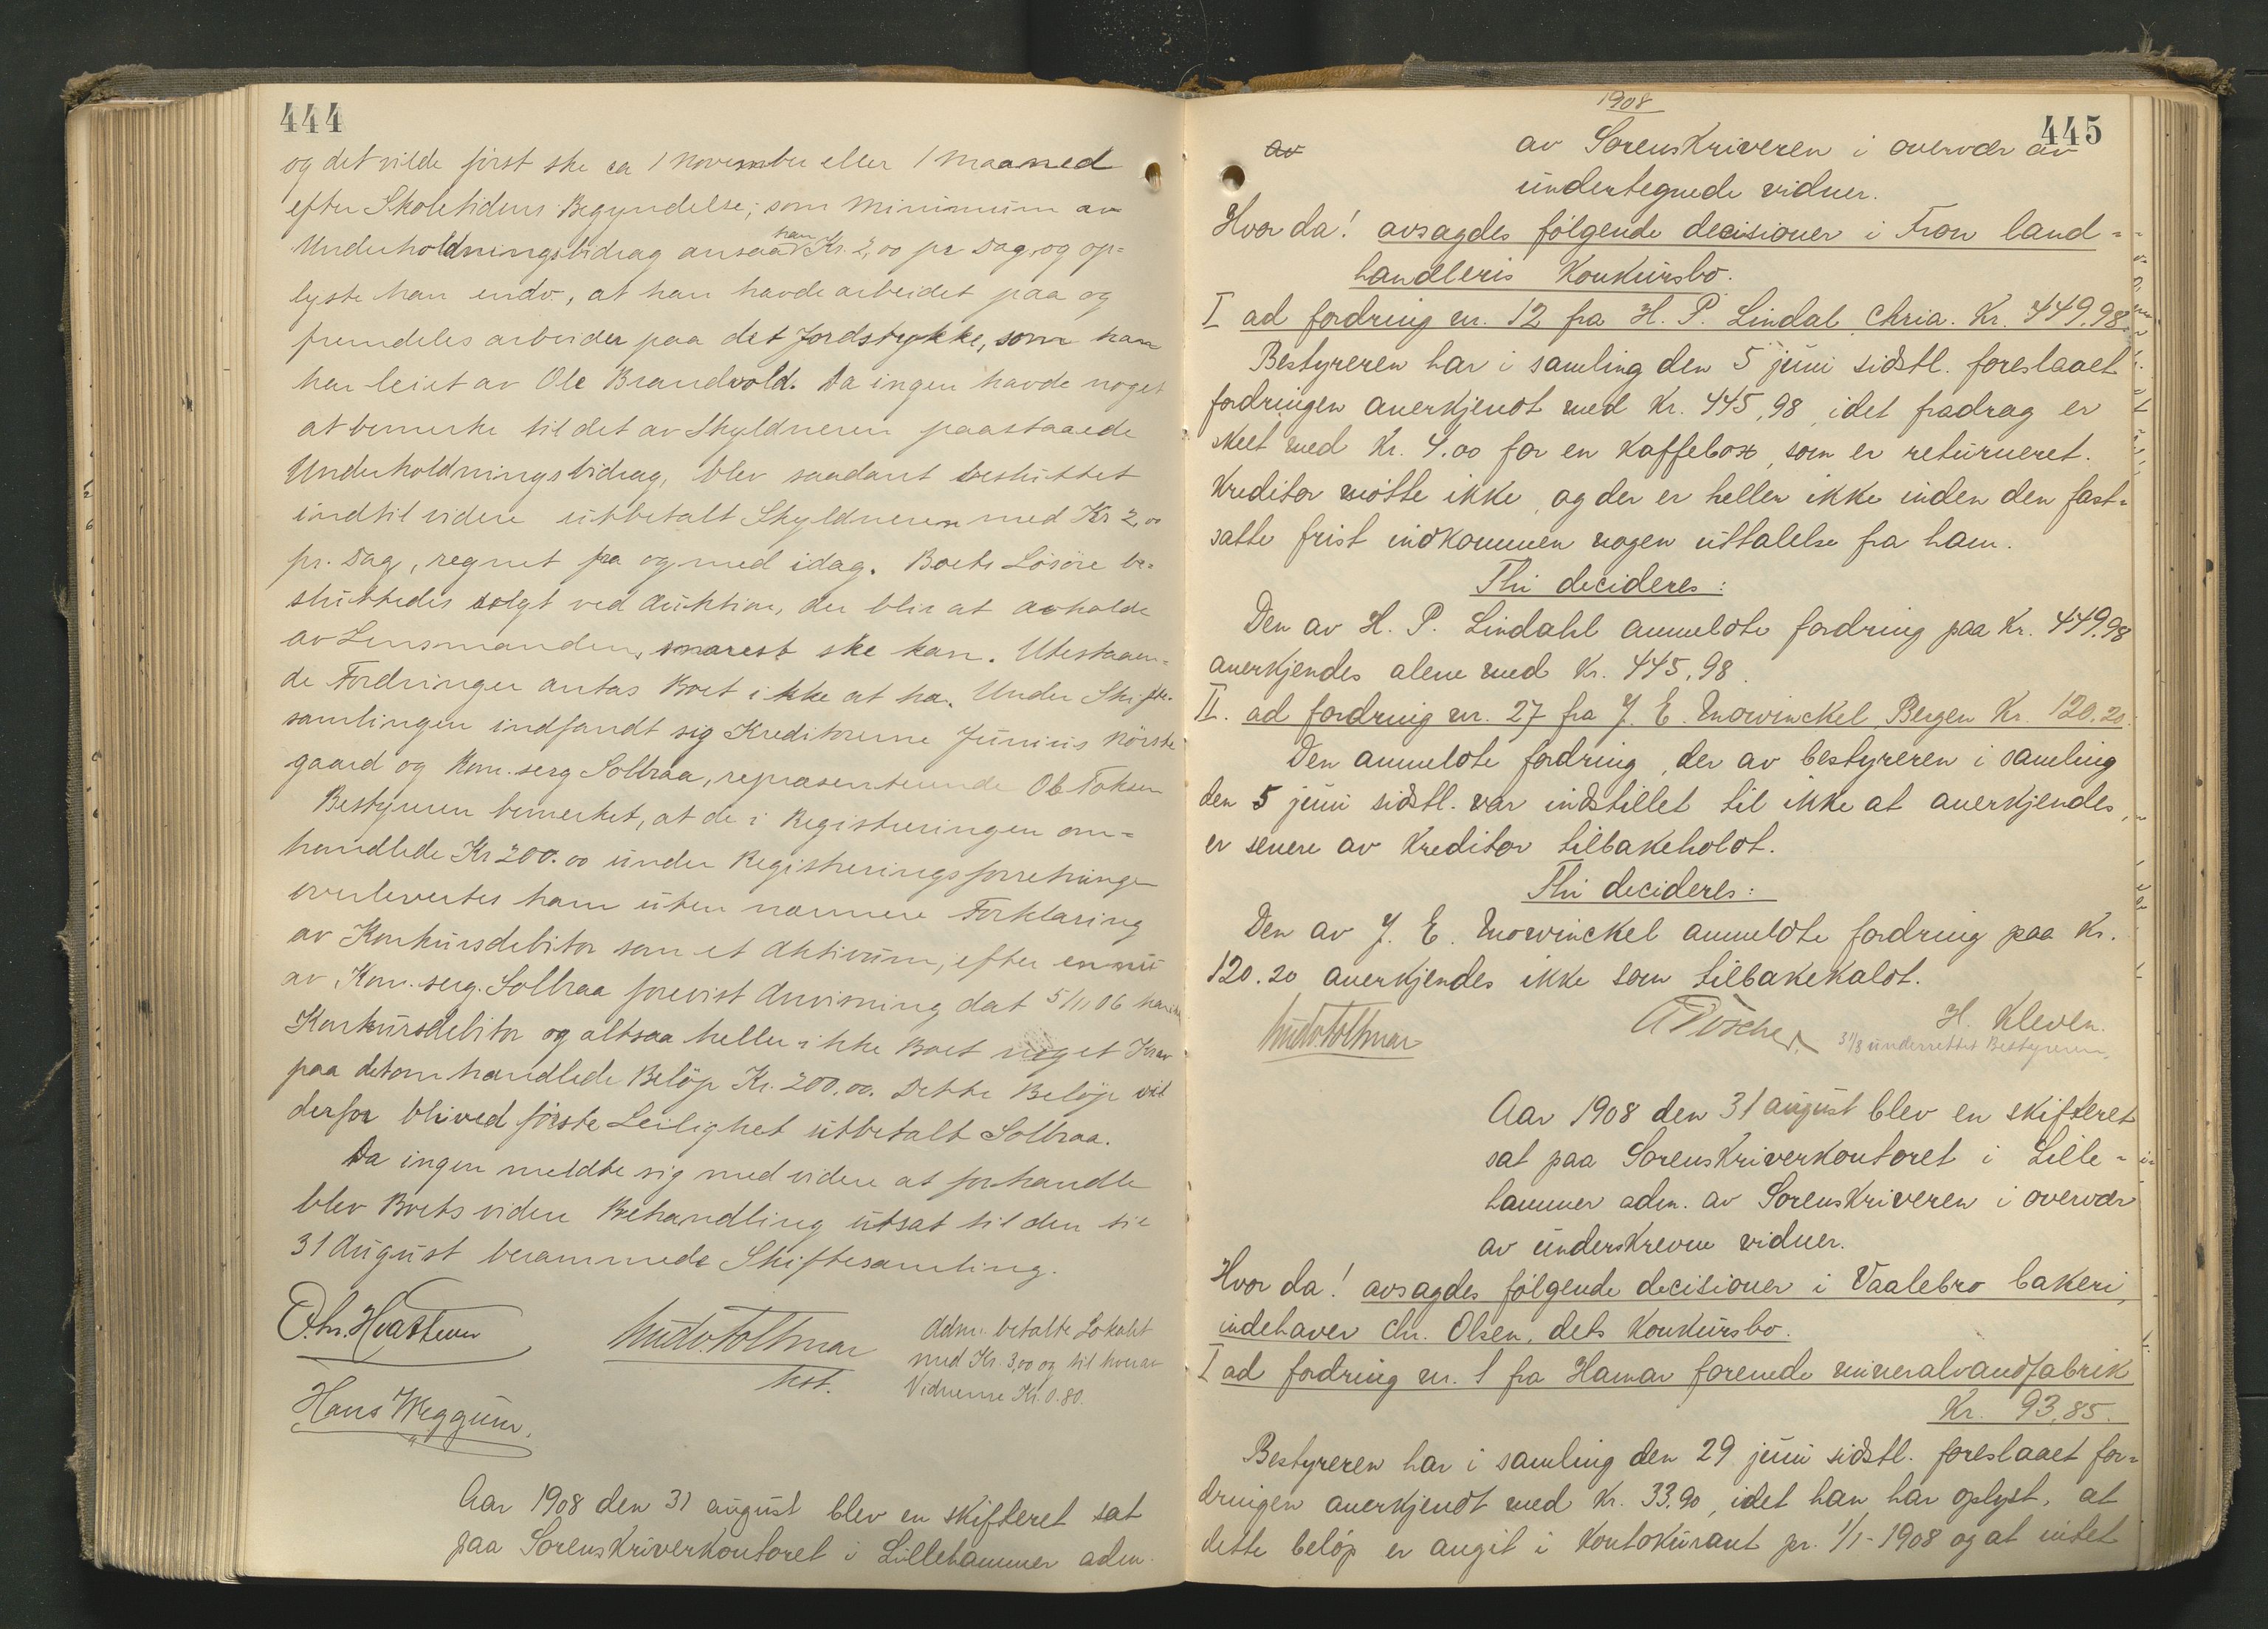 444
og det vilde først ske ca 1 November eller 1 Maaned
efter Skoletidens Begyndelse; som Minimum av
Underholdningsbidrag ansaa han Kr. 2,00 pr Dag, og op=
lyste han endv., at han havde arbeidet paa og
fremdeles arbeider paa det Jordstykke, som han
har leiet av Ole Brandvold. Da ingen havde noget
at bemerke til det av Skyldneren paastaaede
Underholdningsbidrag, blev saadant besluttet
indtil videre utbetalt Skyldneren med Kr 2,00
pr. Dag, regnet fra og med idag. Boets Løsøre be=
sluttedes solgt ved Auktion, der blir at avholde
av Lensmanden, snarest ske kan. Utestaaen=
de Fordringer antas Boet ikke at ha. Under Skifte=
samlingen indfandt sig Kreditorerne Junius Nørste
gaard og Kom. serg Solbraa, repræsenterende Ole Foksen
Bestyreren bemerket, at de i Registreringen om=
handlede Kr 200.00 under Registreringsforretningen
overlevertes ham uten nærmere Forklaring
av Konkursdebitor som et Aktivum, efter en nu
av Kom. serg. Solbraa forevist Anvisning dat 5/11 06 har
Konkursdebitor og altsaa heller ikke Boet noget Krav
paa det omhandlede Beløp Kr. 200.00. Dette Beløp vil
derfor bli ved første Leilighet utbetalt Solbraa.
Da ingen meldte sig med videre at forhandle
blev Boets videre Behandling utsat til den til
31 August berammede Skiftesamling.
Hans Meggum.
kst.
Adm. betalte Lokalet
med Kr. 3,00 og til hver av
Vidnerne Kr. 0.80.
Aar 1908 den 31 august blev en skifteret sat
paa Sorenskriverkontoret i Lillehammer adm.
1908
445
av
av Sorenskriveren i overvær av
undertegnede vidner.
Hvor da! avsagdes følgende decisioner i Fron land=
handleris konkursbo.
I ad fordring nr. 12 fra H. P. Lindal, Chria. Kr. 449.98.
Bestyreren har i samling den 5 juni sidstl. foreslaaet
fordringen anerkjendt med Kr. 445,98, idet fradrag er
skeet med Kr. 4.00 for en kaffebox, som er returneret.
Kreditor møtte ikke, og der er heller ikke inden den fast=
satte frist indkommen nogen uttalelse fra ham.
Thi decideres:
Den av H. P. Lindahl anmeldte fordring paa Kr. 449.98
anerkjendes alene med Kr. 445.98.
II. ad fordring nr. 27 fra J. E. Mowinckel, Bergen Kr. 120.20.
Den anmeldte fordring, der av bestyreren i samling
den 5 juni sidstl. var indstillet til ikke at anerkjendes,
er senere av kreditor tilbakeholdt.
Thi decideres:
Den av J. E. Mowinckel anmeldte fordring paa Kr.
120.20 anerkjendes ikke som tilbakekaldt.
H. Kleven.
31/8 underrettet Bestyreren.
Aar 1908 den 31 august blev en skifteret
sat paa Sorenskriverkontoret i Lille=
hammer adm. av Sorenskriveren i overvær
av underskrevne vidner.
Hvor da! avsagdes følgende decisioner i Vaalebro bakeri,
indehaver Chr. Olsen, dets konkursbo.
I ad fordring nr. 1 fra Hamar forenede mineralvandfabrik
Kr. 93,85.
Bestyreren har i samling den 29 juni sidstl. foreslaaet for=
dringen anerkjendt med Kr. 33.90, idet han har oplyst, at
dette beløp er angit i kontokurant pr. 1/1-1908 og at intet